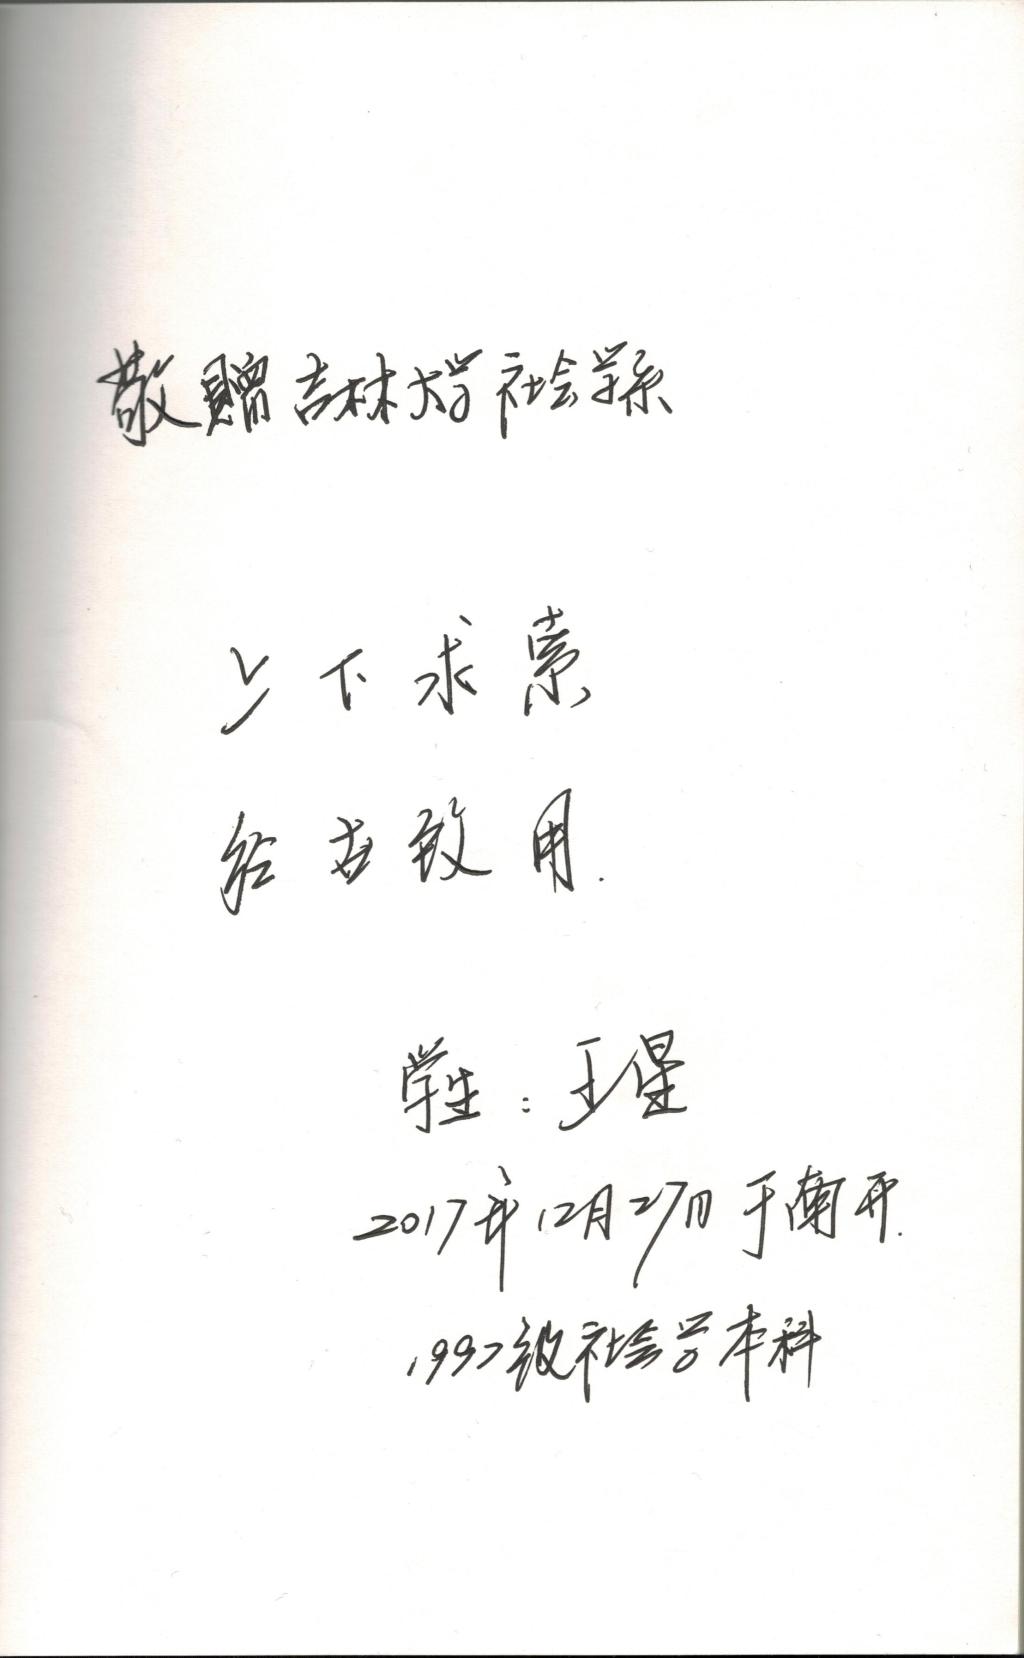 敬赠吉林大学社会学系
上下求索
经世致用.
学生:王星
2017年12月27日于南开.
1997级社会学本科